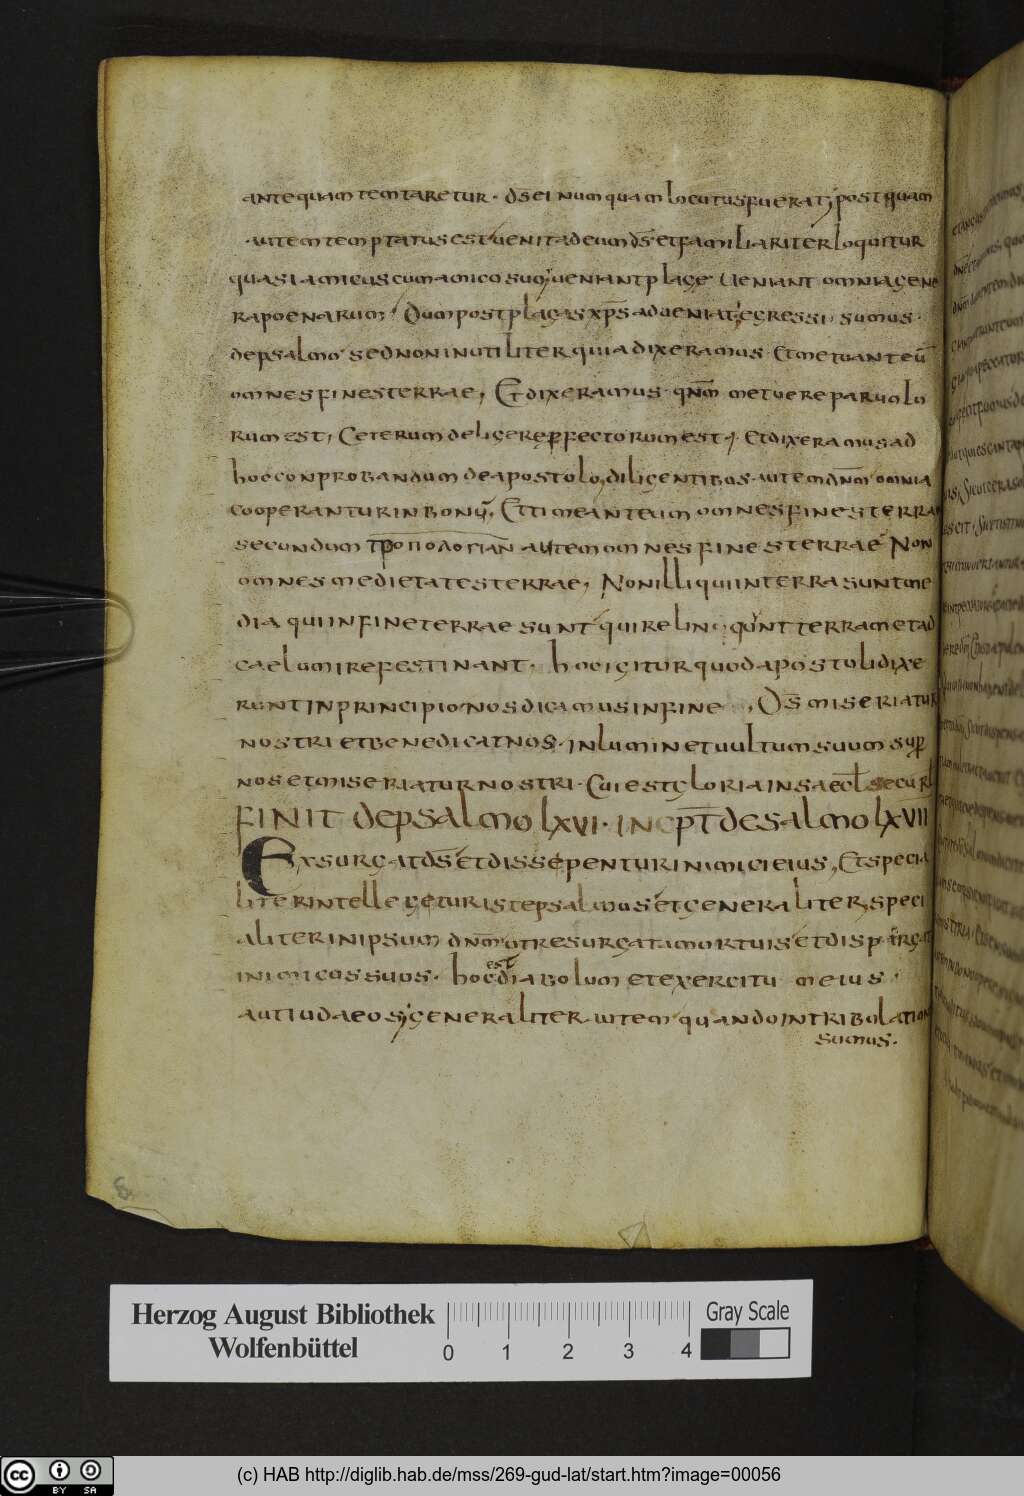 antequam temtaretur · d̄s ei numquam locutus fuerat, postquam
autem temptatus est uenit ad eum d̄s et familiariter loquitur
quasi amicus cum amico suo, ueniant plage ueniant omnia gene
ra poenarum, Dum post plagas xp̄s adueniat, egressi sumus
de psalmo sed non inutiliter quia dixeramus · Et metuant eū
omnes fines terrae, Et dixeramus · qn̄m metuere paruolo
rum est, Ceterum deligere perfectorum est, · Et dixeramus ad
hoc conprobandum de apostolo, diligentibus autem dn̄m omnia
cooperantur in bonū, Et timeant eum omnes fines terrae
secundum τροπολογιαν autem omnes fines terrae Non
omnes medietates terrae, Non illi qui in terra sunt me
dia qui in fine terrae sunt qui relinqunt terram et ad
caelum ire festinant · hoc igitur quod apostoli dixe
runt in principio nos dicamus in fine, D̄s miseriatur
nostri et benedicat nos · inluminet uultum suum sup
nos et miseriatur nostri · Cui est gloria in saecl̄ secūrl
FINIT de psalmo lxvi · incp̄t de salmo lxvii
Exsurgat d̄s et dissepentur inimici eius, Et specia
liter intellegetur iste psalmus et generaliter, speci
aliter in ipsum dn̄m ut resurgat a mortuis et dispargat
inimicos suos · hoc est diabolum et exercitu meius ·
aut iudaeos, generaliter autem quando in tribulation
sumus ·
8
Herzog August Bibliothek
Wolfenbüttel
0 1 2 3 4
Gray Scale
cc BY SA
(c) HAB http://diglib.hab.de/mss/269-gud-lat/start.htm?image=00056